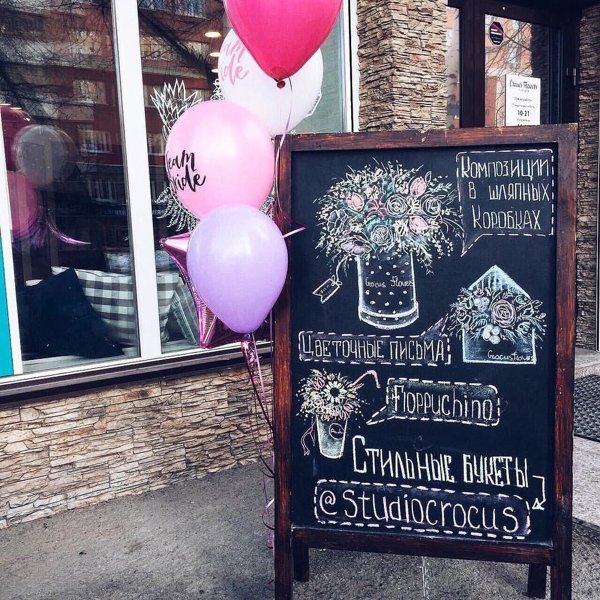 Композиции
в шляпных
коробках
Crocus Flowers
Цветочные письма
Crocus Flowers
Floppuchino
Стильные букеты
@studiocrocus
team
bride
Crocus Flowers
10-21